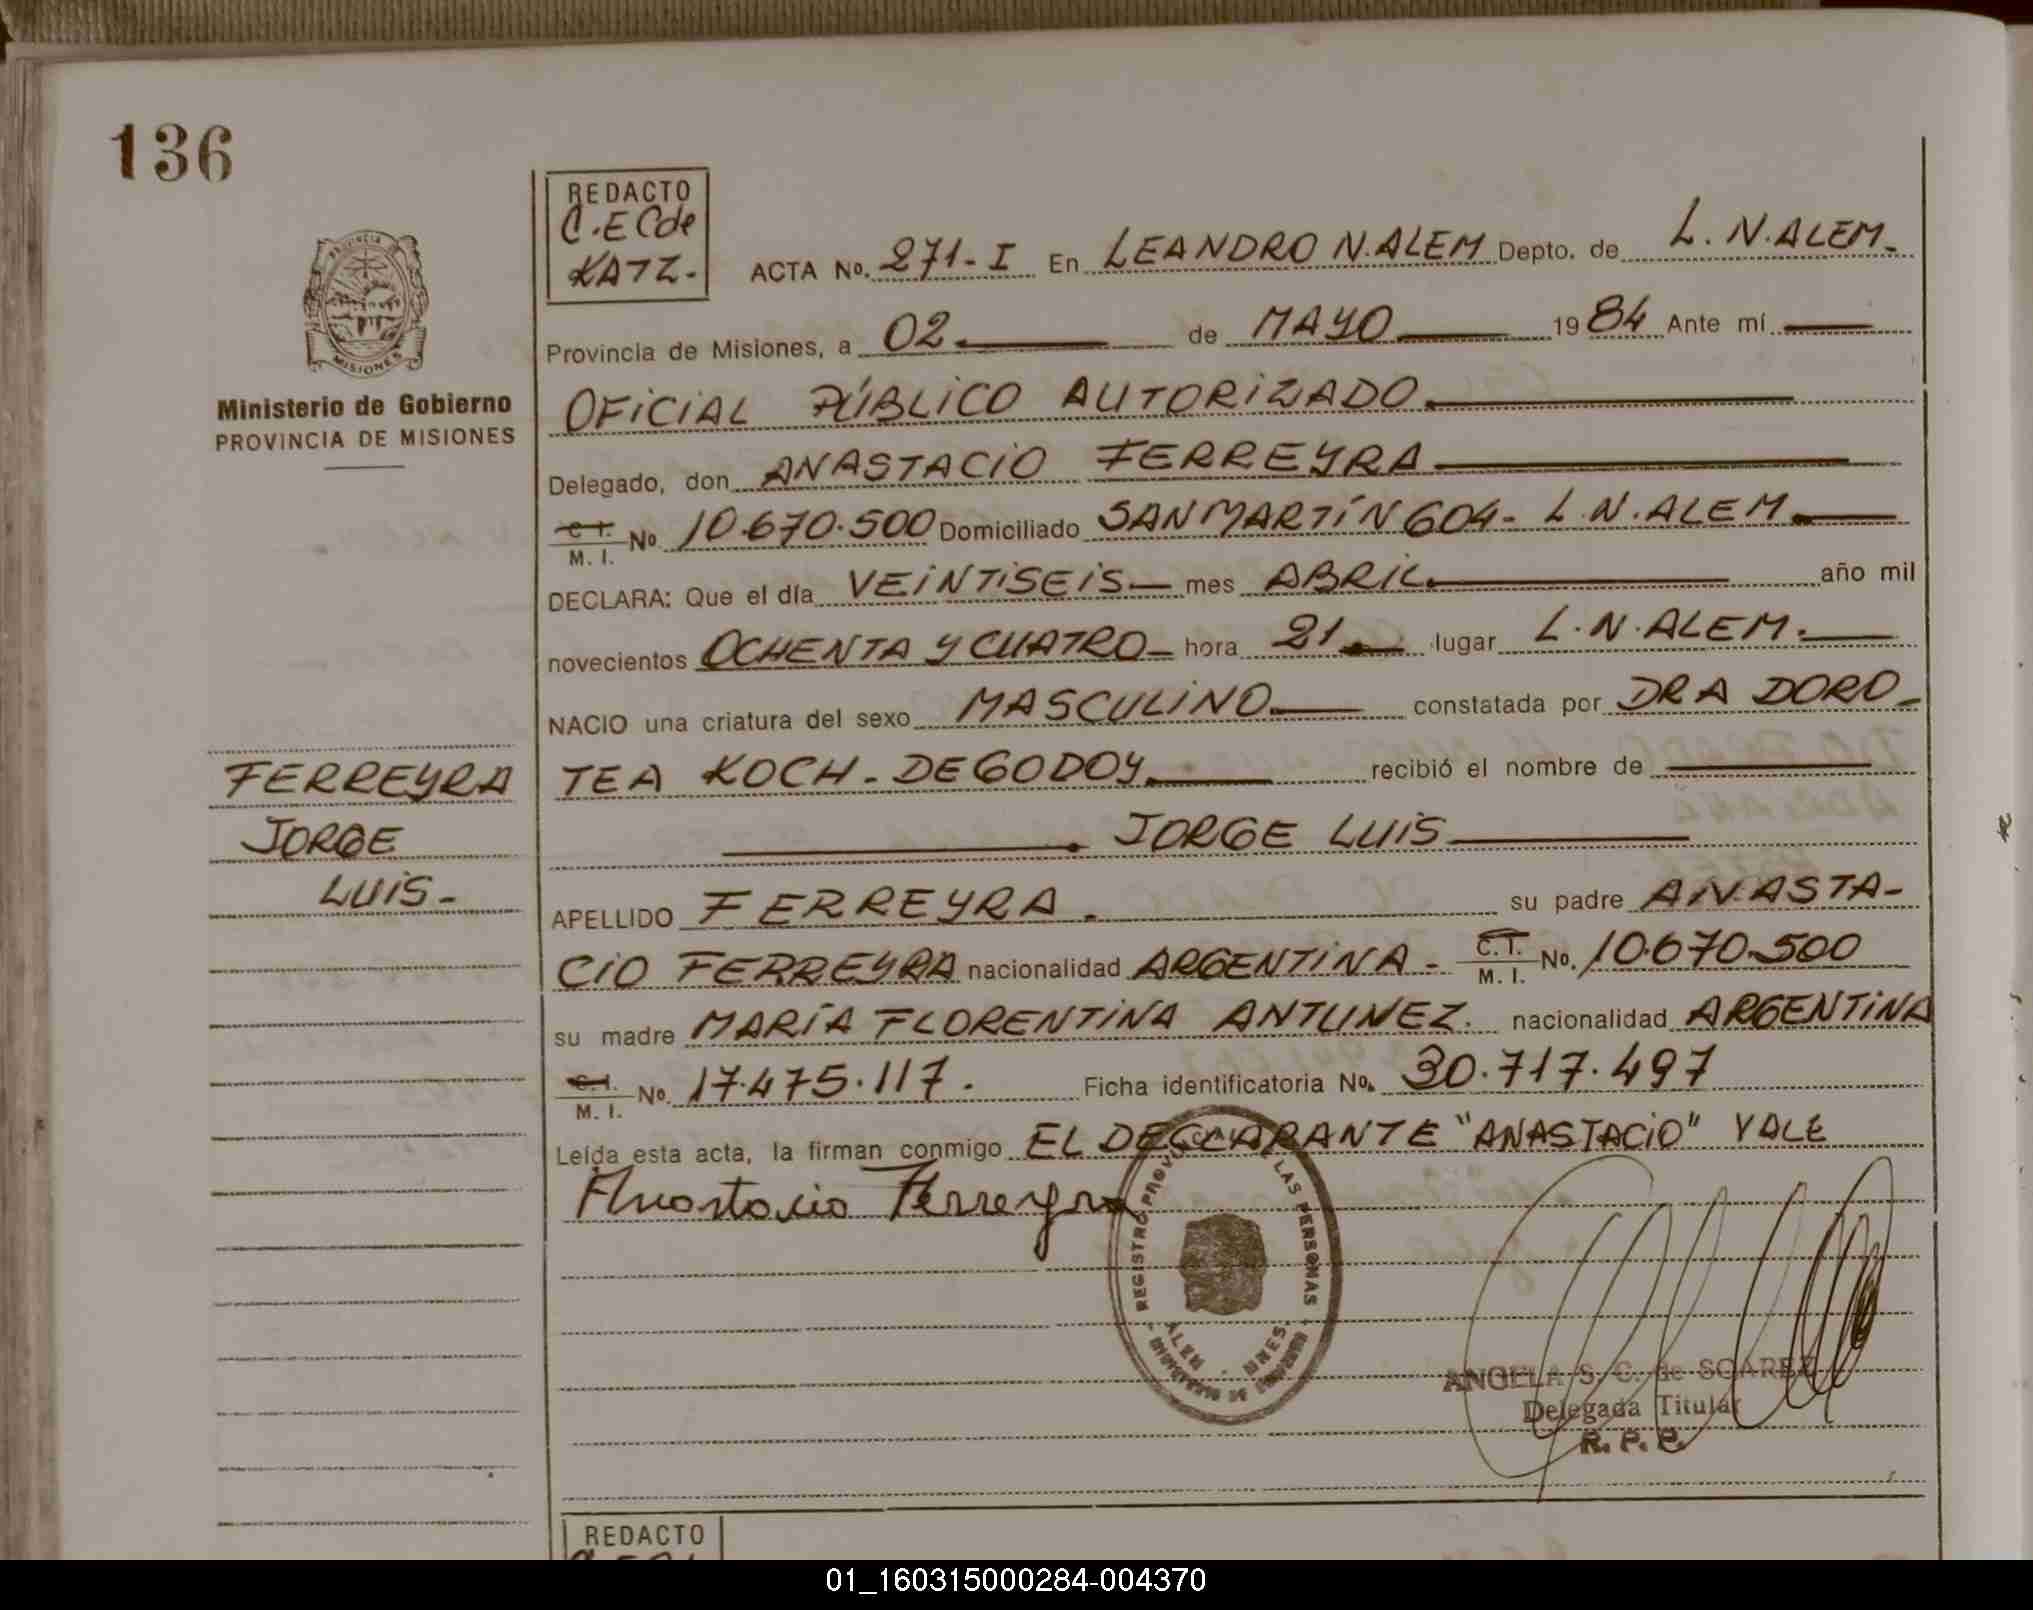 136
REDACTO
C.E Cde
KATZ.-
ACTA No. 271-I En LEANDRO N. ALEM Depto. de L. N. ALEM.-
PROVINCIA DE
MISIONES
Provincia de Misiones, a 02 de MAYO 1984 Ante mí
Ministerio de Gobierno
PROVINCIA DE MISIONES
OFICIAL PÚBLICO AUTORIZADO
Delegado, don ANASTACIO FERREYRA
C. I.
M. I. No. 10.670.500 Domiciliado SAN MARTÍN 604- L.N. ALEM.
DECLARA: Que el día VEINTISEIS mes ABRIL año mil
novecientos OCHENTA Y CUATRO hora 21 lugar L.N. ALEM.
NACIO una criatura del sexo MASCULINO constatada por DRA DORO-
TEA KOCH. DE GODOY recibió el nombre de
JORGE LUIS
FERREYRA
JORGE
LUIS.-
APELLIDO FERREYRA. su padre ANASTA-
CIO FERREYRA nacionalidad ARGENTINA - C.I.
M. I. No. 10.670.500
su madre MARÍA FLORENTINA ANTUNEZ. nacionalidad ARGENTINA
C.I.
M. I. No. 17.475.117. Ficha identificatoria No. 30.717.497
Leída esta acta, la firman conmigo EL DECLARANTE "ANASTACIO" VALE
Anastacio Ferreyra
REGISTRO PROVINCIAL DE LAS PERSONAS
ALEM - MNES.
MINISTERIO DE GOBIERNO
ANGELA S. C. de SOAREZ
Delegada Titular
R. P. P.
REDACTO
01_160315000284-004370